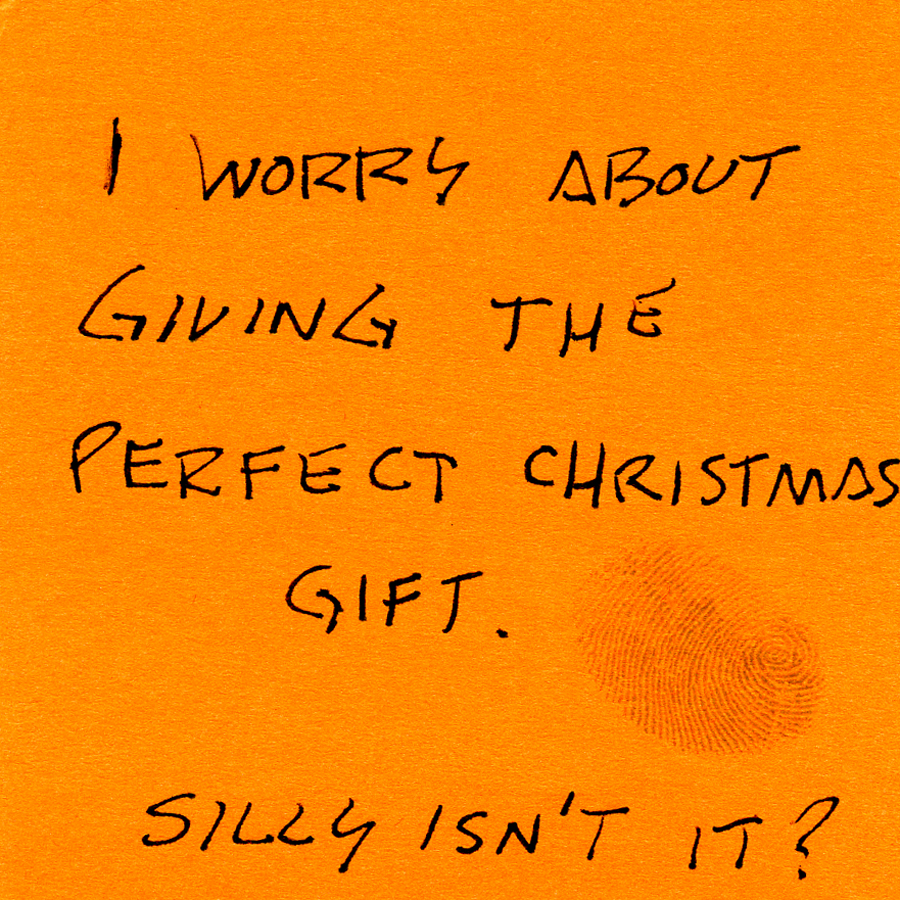 I WORRY ABOUT
GIVING THE
PERFECT CHRISTMAS
GIFT.
SILLY ISN'T IT?